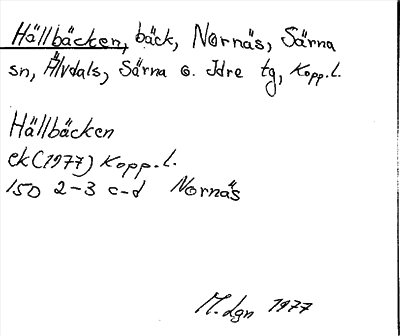 Hällbäcken, bäck, Nornäs, Särna
sn, Älvdals, Särna o. Idre tg, Kopp.l.
Hällbäcken
ek(1977) Kopp.l.
15D 2-3 c-d Nornäs
M.Lgn 1977